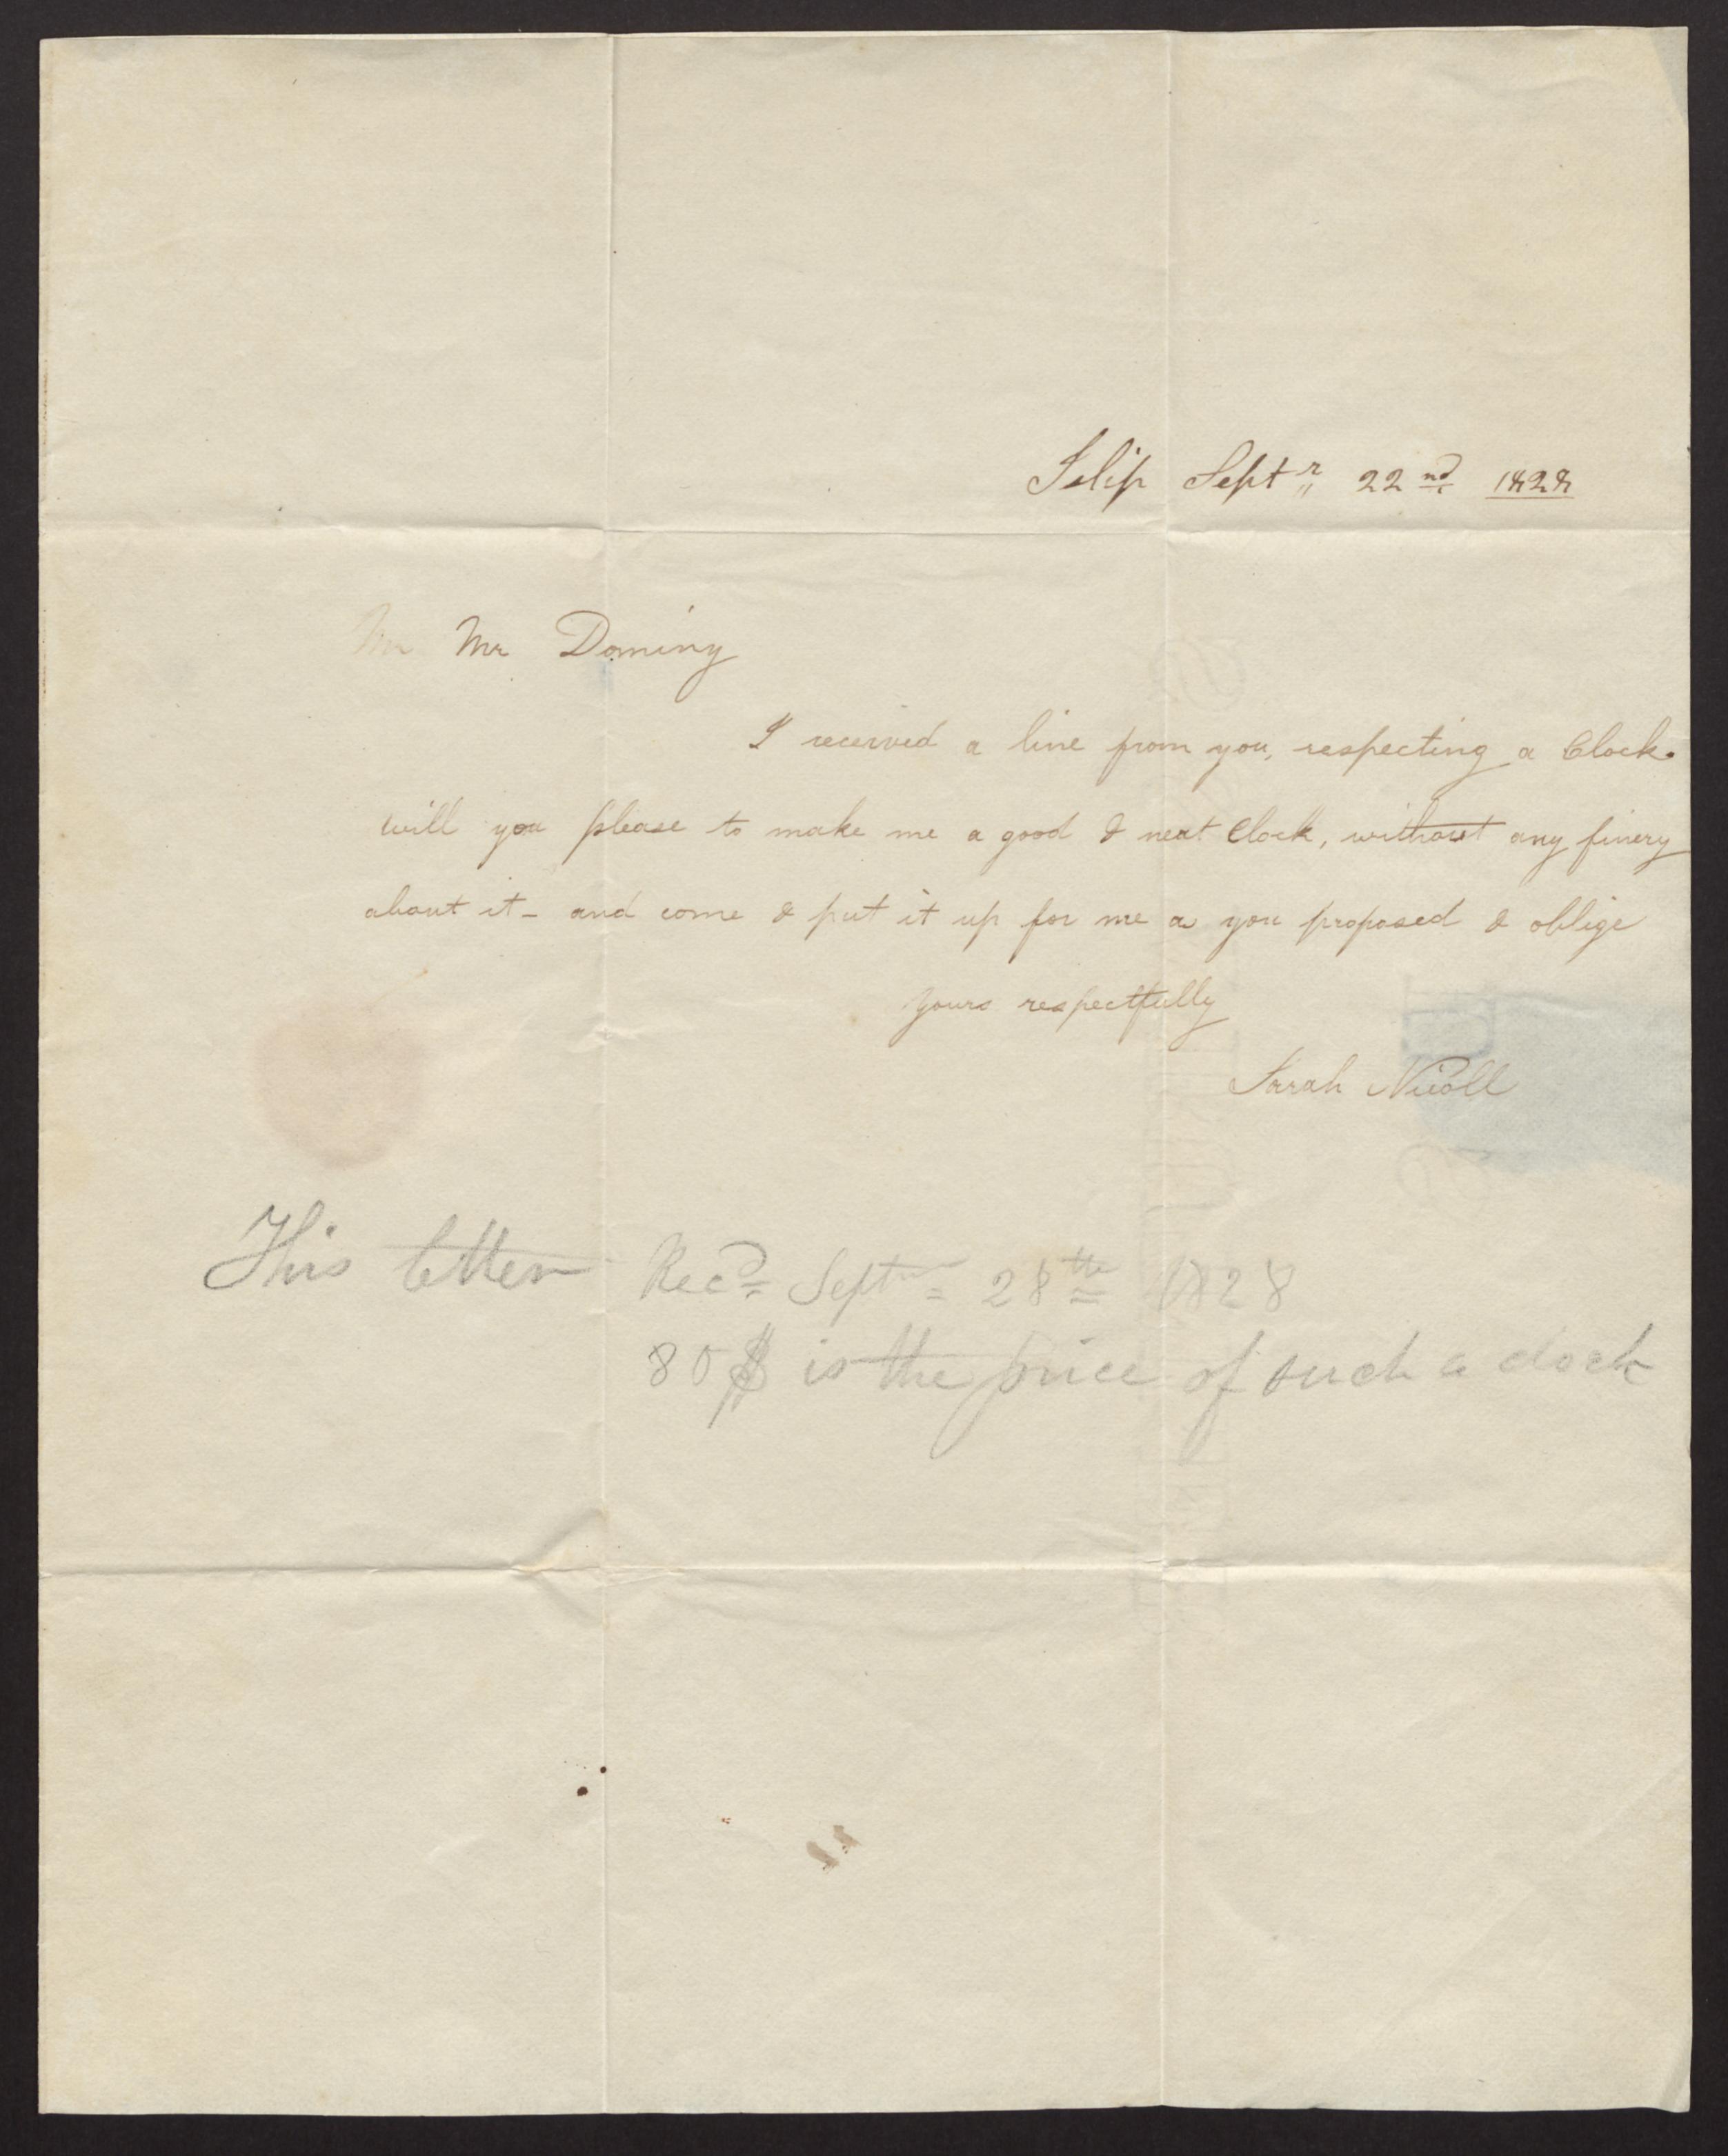 Islip Septr 22nd 1828
Mr Mr Dominy
I received a line from you, respecting a Clock.
will you please to make me a good & neat Clock, without any finery
about it - and come & put it up for me as you proposed & oblige
yours respectfully
Sarah Nicoll
This letter Recd Septr 28th 1828
80$ is the price of such a clock